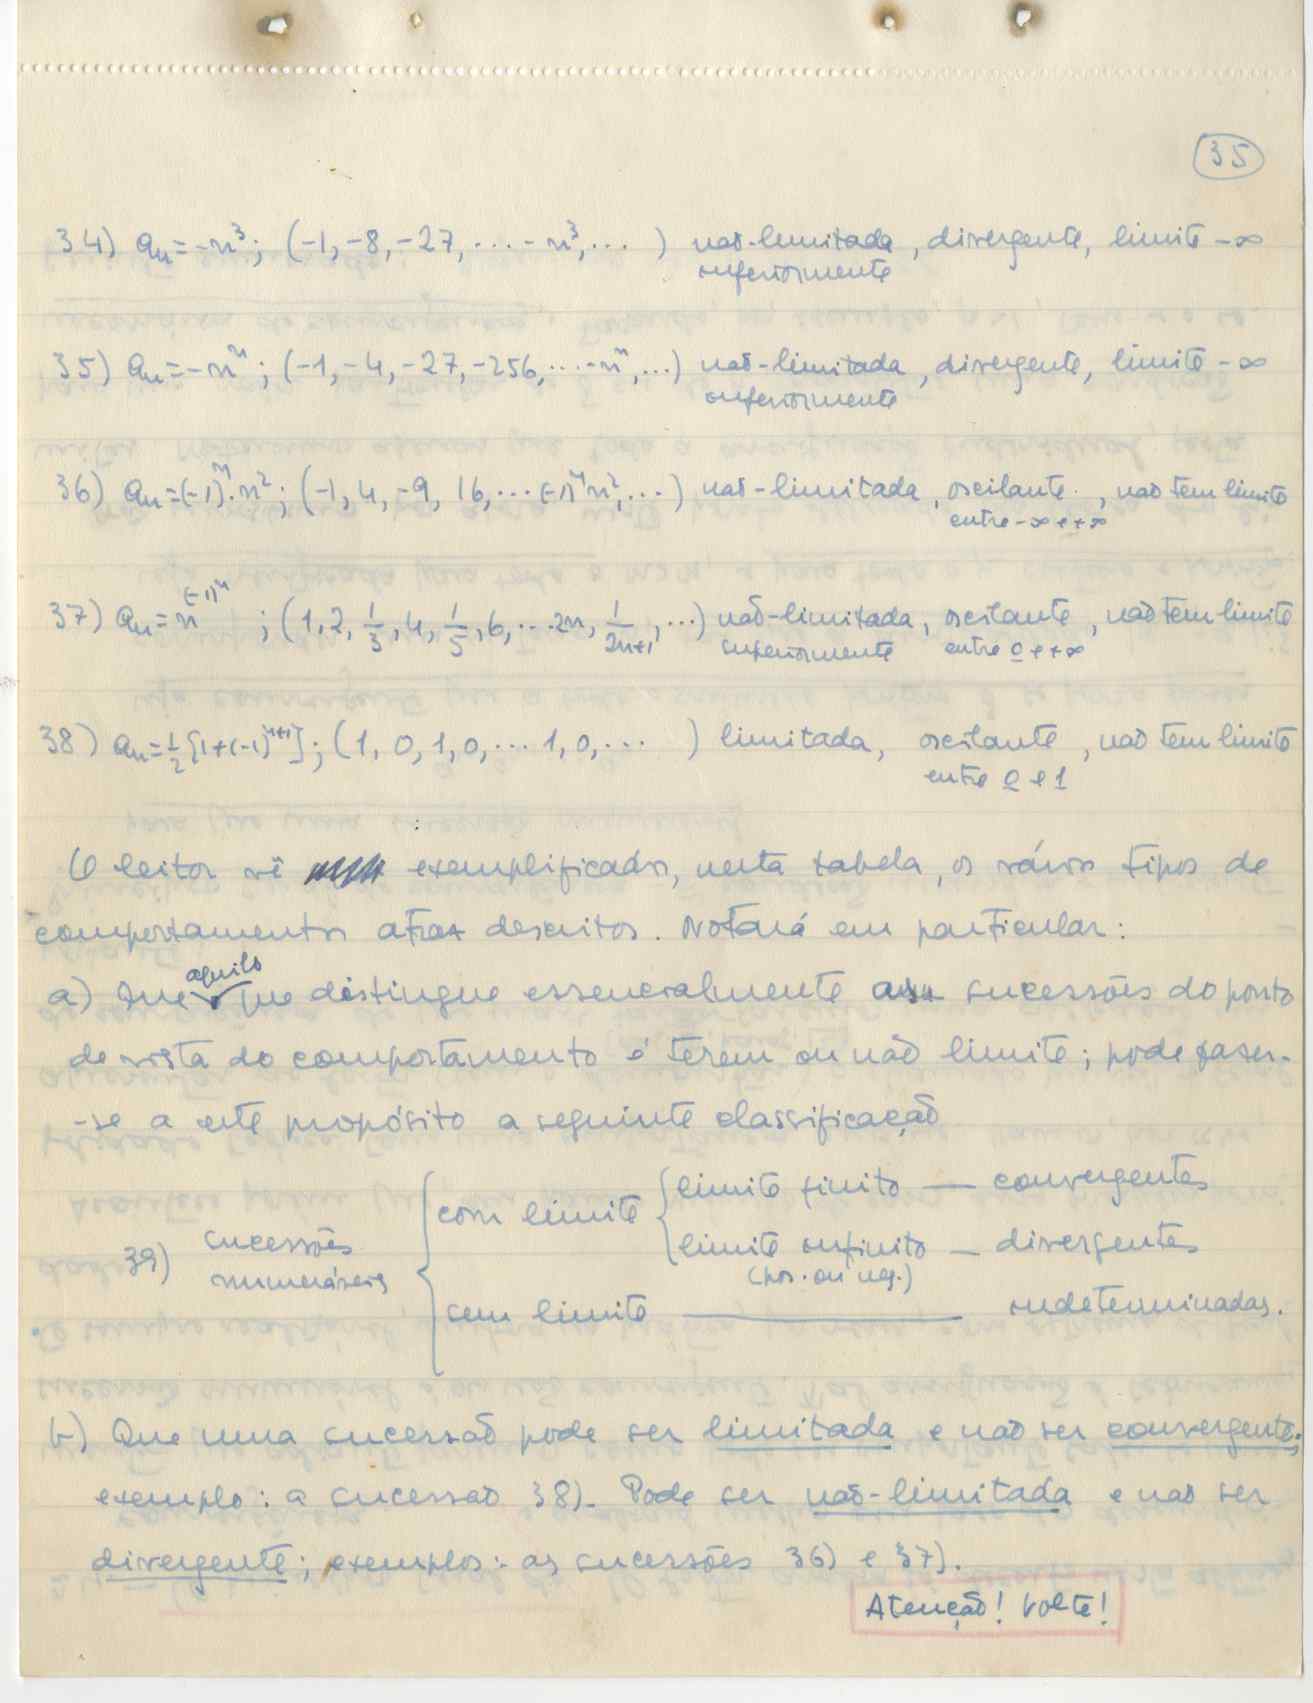 35
34) aₙ = -n³; (-1, -8, -27, ... -n³, ... ) não-limitada, divergente, limite -∞
inferiormente
35) aₙ = -nⁿ; (-1, -4, -27, -256, ... -nⁿ, ...) não-limitada, divergente, limite -∞
inferiormente
36) aₙ = (-1)ⁿ.n²; (-1, 4, -9, 16, ... (-1)ⁿn², ... ) não-limitada, oscilante, não tem limite
entre -∞ e +∞
37) aₙ = n^(-1)ⁿ ; (1, 2, 1/3, 4, 1/5, 6, ... 2n, 1/2n+1, ...) não-limitada, oscilante, não tem limite
superiormente entre 0 e +∞
38) aₙ = 1/2 [1+(-1)ⁿ⁺¹]; (1, 0, 1, 0, ... 1, 0, ... ) limitada, oscilante, não tem limite
entre 0 e 1
O leitor vê exemplificados, nesta tabela, os vários tipos de
comportamentos atrás descritos. Notará em particular:
a) Que aquilo que distingue essencialmente as sucessões do ponto
de vista do comportamento é terem ou não limite; pode fazer-
-se a este propósito a seguinte classificação
39) sucessões numeráveis
com limite
limite finito — convergentes
limite infinito — divergentes
(pos. ou neg.)
sem limite — indeterminadas.
b) Que uma sucessão pode ser limitada e não ser convergente;
exemplo: a sucessão 38). Pode ser não-limitada e não ser
divergente; exemplos: as sucessões 36) e 37).
Atenção! Volte!